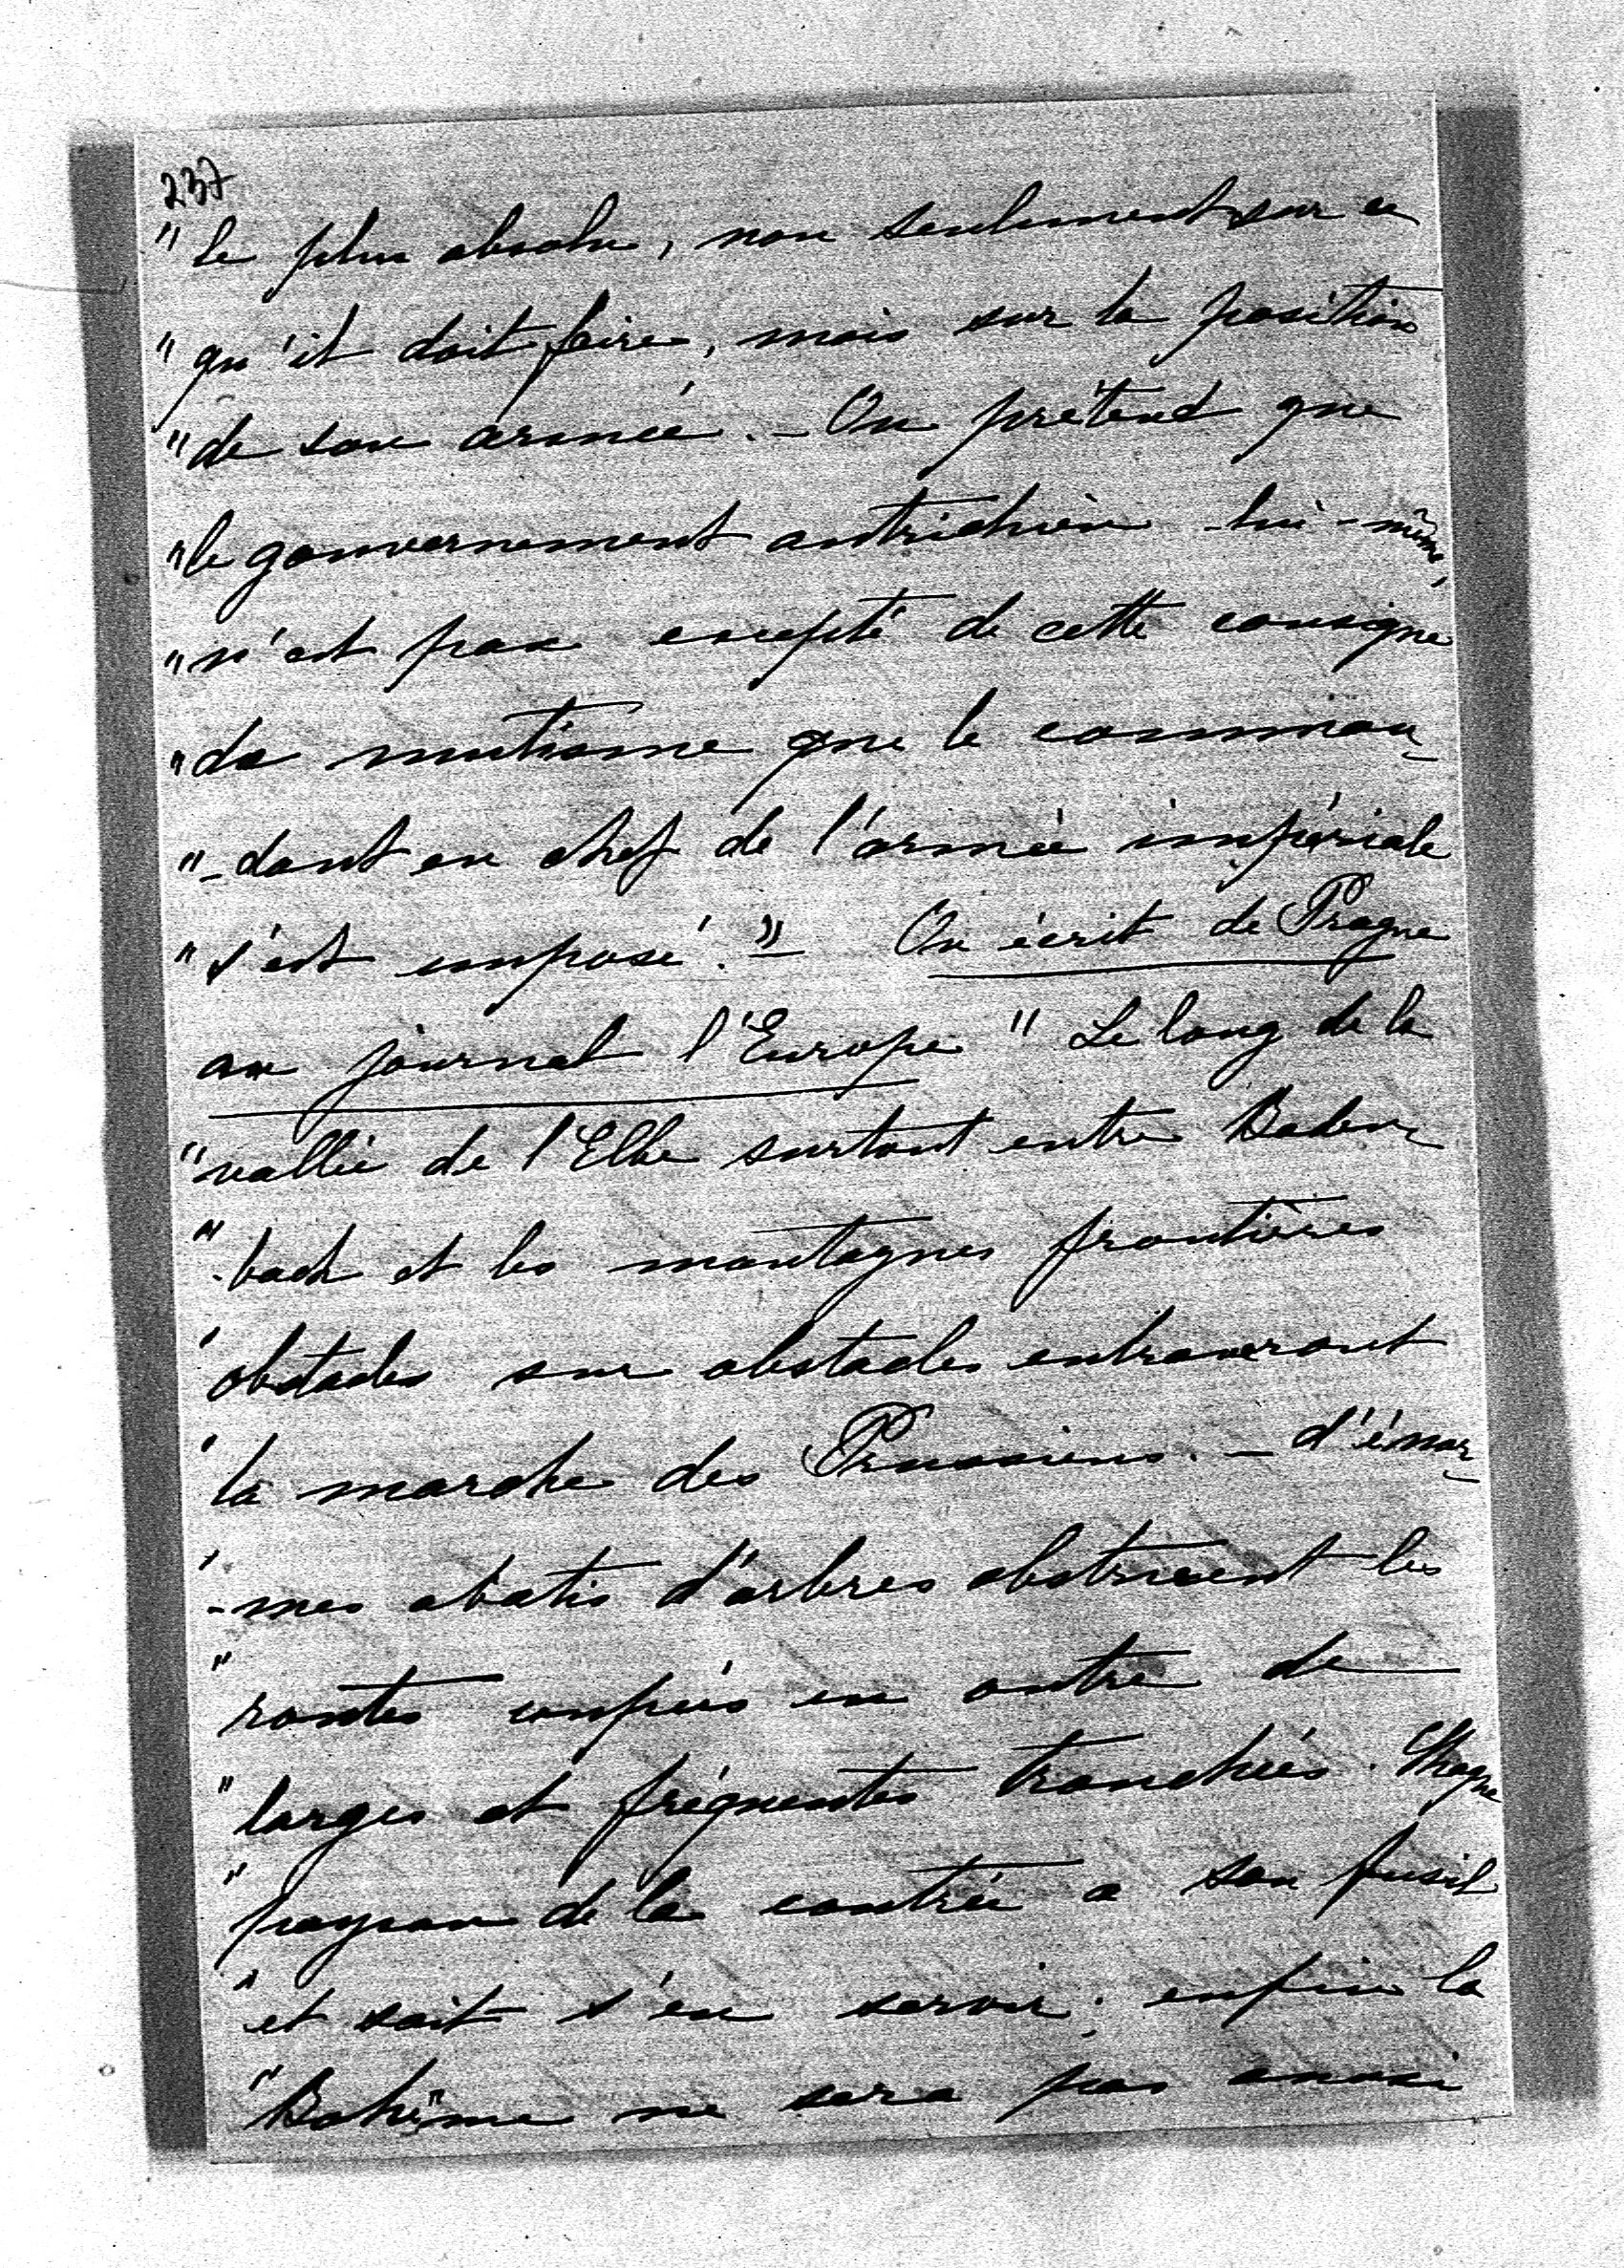 237
" le plus absolu, non seulement sur ce
" qu'il doit faire, mais sur la position
" de son armée. - On prétend que
" le gouvernement autrichien lui-même,
" n'est pas excepté de cette consigne
" de mutisme que le comman-
" -dant en chef de l'armée impériale
" s'est imposé." - On écrit de Prague
au journal l'Europe " Le long de la
" vallée de l'Elbe surtout entre Boden-
" -bach et les montagnes frontières
" obstacles sur obstacles entraveront
" la marche des Prussiens. - d'énor-
" -mes abatis d'arbres obstruent les
" routes coupées en outre de
" larges et fréquentes tranchées. Chaque
" paysan de la contrée a son fusil
" et sait s'en servir; enfin la
" Bohême ne sera pas aussi